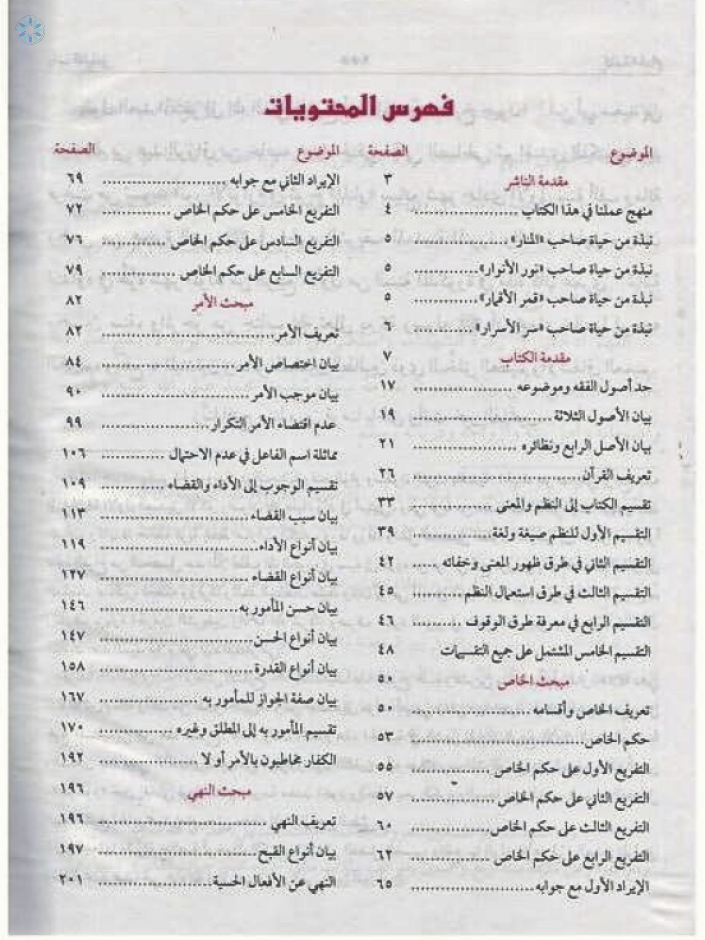 فهرس المحتويات
الموضوع الصفحة
مقدمة الناشر ٣
منهج عملنا في هذا الكتاب ................ ٤
نبذة من حياة صاحب «المنار» ........... ٥
نبذة من حياة صاحب «نور الأنوار» ...... ٥
نبذة من حياة صاحب «قمر الأقمار» ...... ٥
نبذة من حياة صاحب «سر الأسرار» ...... ٦
مقدمة الكتاب ٧
حد أصول الفقه وموضوعه ............. ١٧
بيان الأصول الثلاثة .................... ١٩
بيان الأصل الرابع ونظائره .............. ٢١
تعريف القرآن ......................... ٢٦
تقسيم الكتاب إلى النظم والمعنى ......... ٣٣
التقسيم الأول للنظم صيغة ولغة ......... ٣٩
التقسيم الثاني في طرق ظهور المعنى وخفائه .. ٤٢
التقسيم الثالث في طرق استعمال النظم ..... ٤٥
التقسيم الرابع في معرفة طرق الوقوف ..... ٤٦
التقسيم الخامس المشتمل على جميع التقسيمات ٤٨
مبحث الخاص ٥٠
تعريف الخاص وأقسامه ................ ٥٠
حكم الخاص .......................... ٥٣
التفريع الأول على حكم الخاص ......... ٥٥
التفريع الثاني على حكم الخاص .......... ٥٧
التفريع الثالث على حكم الخاص ......... ٦٠
التفريع الرابع على حكم الخاص .......... ٦٢
الإيراد الأول مع جوابه .................. ٦٥
الموضوع الصفحة
الإيراد الثاني مع جوابه .................. ٦٩
التفريع الخامس على حكم الخاص ........ ٧٢
التفريع السادس على حكم الخاص ........ ٧٦
التفريع السابع على حكم الخاص ......... ٧٩
مبحث الأمر ٨٢
تعريف الأمر .......................... ٨٢
بيان اختصاص الأمر ................... ٨٤
بيان موجب الأمر ..................... ٩٠
عدم اقتضاء الأمر التكرار ............... ٩٩
مماثلة اسم الفاعل في عدم الاحتمال ...... ١٠٦
تقسيم الوجوب إلى الأداء والقضاء ....... ١٠٩
بيان سبب القضاء ..................... ١١٣
بيان أنواع الأداء ....................... ١١٩
بيان أنواع القضاء ..................... ١٢٧
بيان حسن المأمور به ................... ١٤٦
بيان أنواع الحسن ...................... ١٤٧
بيان أنواع القدرة ...................... ١٥٨
بيان صفة الجواز للمأمور به ............. ١٦٧
تقسيم المأمور به إلى المطلق وغيره ......... ١٧٠
الكفار مخاطبون بالأمر أو لا ............. ١٩٢
مبحث النهي ١٩٦
تعريف النهي ......................... ١٩٦
بيان أنواع القبح ....................... ١٩٧
النهي عن الأفعال الحسية ................ ٢٠١